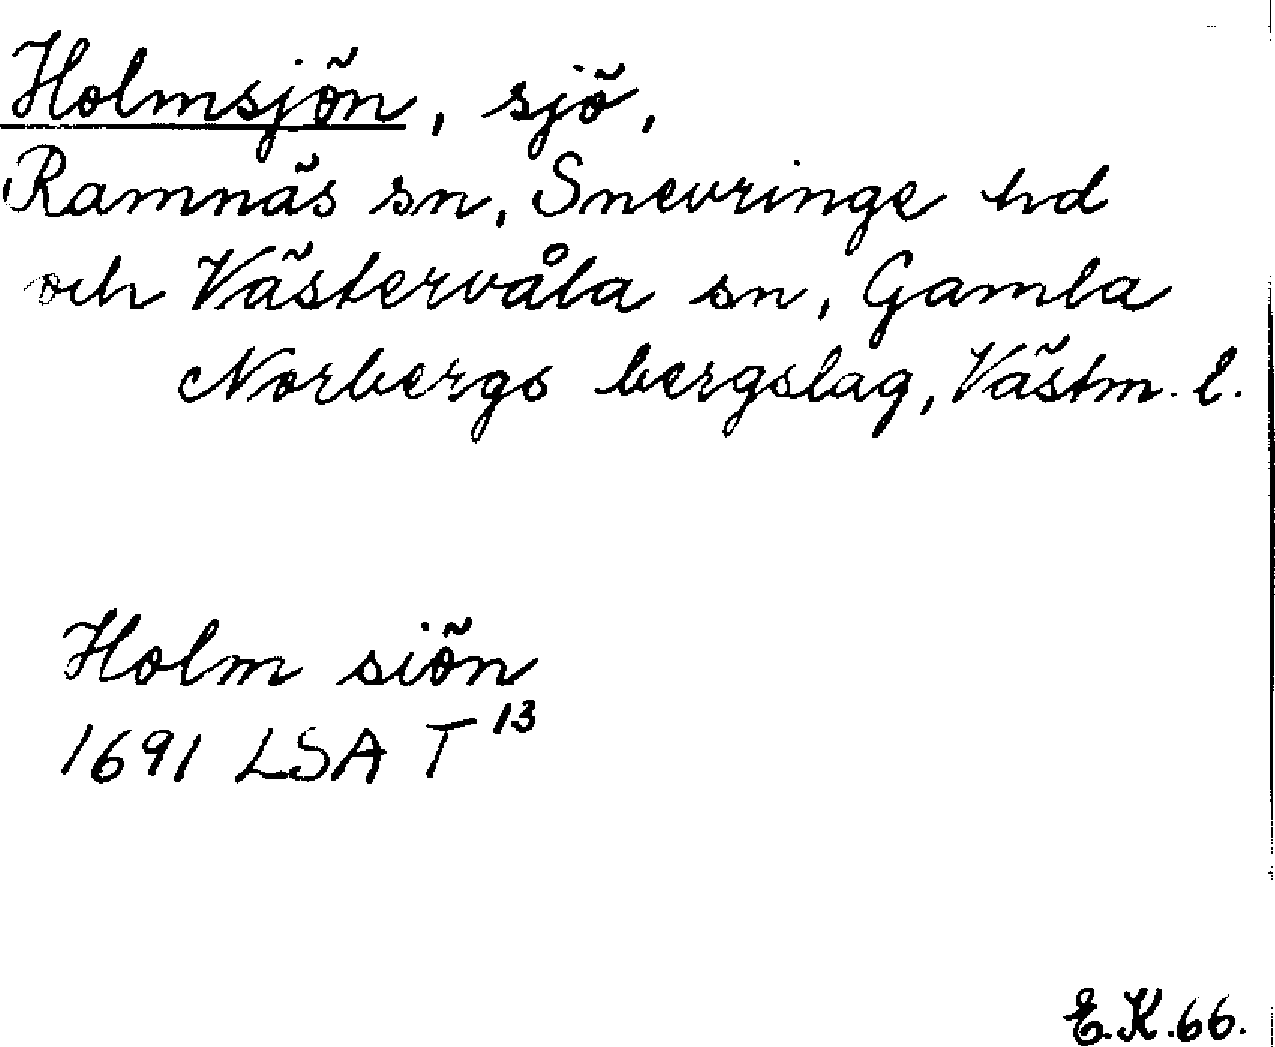 Holmsjön, sjö,
Ramnäs sn, Snevringe hd
och Västervåla sn, Gamla
Norbergs bergslag, Västm. l.
Holm siön
1691 LSA T 13
E.K.66.